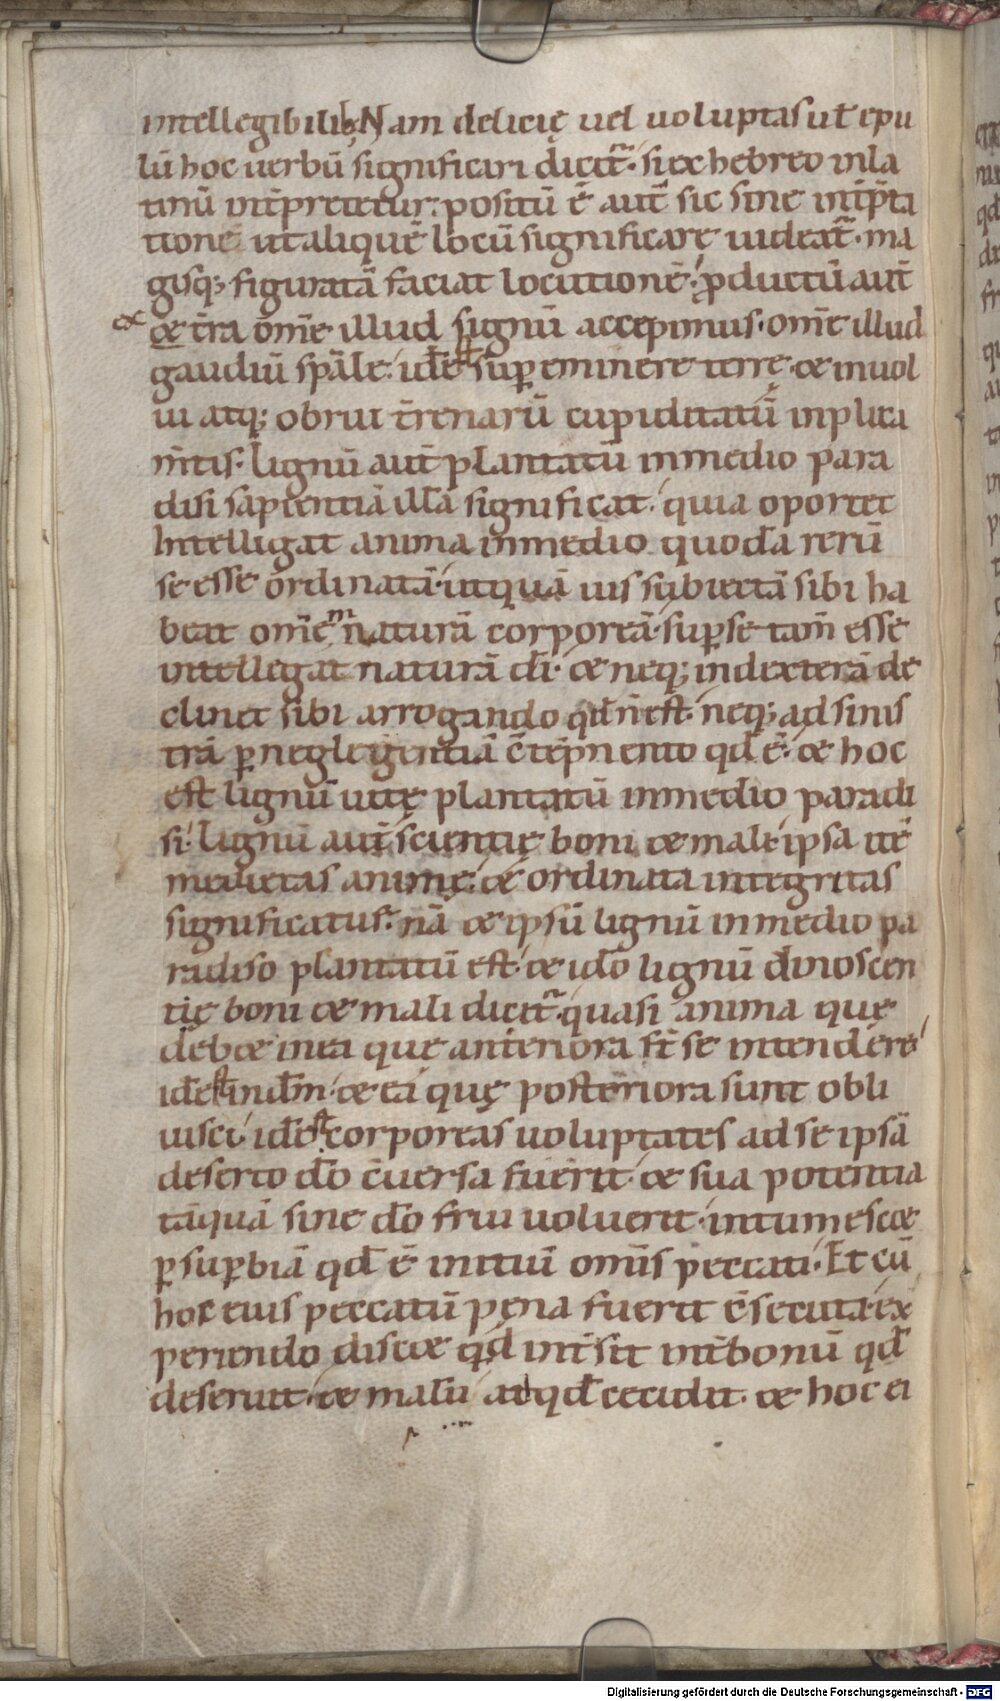 intellegibilib; Nam delicię uel uoluptas ut̄ epu
lū hoc uerbū significari dicit̄. si ex hebreo in la
tinū int̄pretetur. positū ē aut̄ sic sine int̄p̄ta
tione ut aliquē locū significare uideat̄. ma
gisq; figuratā faciat locutionē. ꝓductū aut̄
ex
& t̄ra om̄e illud lignū accepimus. om̄e illud
gaudiū sp̄ale. id est suꝑeminere terrę. & inuol
ui atq; obrui t̄renarū cupiditatū inplica
m̄tis. Lignū aut̄ plantatū in medio para
disi sapientiā illā significat. quia oportet
Intelligat anima in medio quodā rerū
se esse ordinatā. ut quāuis subiectā sibi ha
beat om̄em naturā corporeā. suꝑ se tam̄ esse
intellegat naturā dī. & neq; in dexterā de
clinet sibi arrogando qđ n̄ est. neq; ad sinis
trā ꝑ neglegentiā c̄tēpnento qđ ē. & hoc
est lignū uitę plantatū in medio paradi
si. Lignū aut̄ scientię boni & mali. ipsa itē
medietas animę. & ordinata integritas
significatur. nā & ipsū lignū in medio pa
radiso plantatū est. & ideo lignū dinoscen
tię boni & mali dicit̄. quasi anima quę
deb& in ea que anteriora st̄ se intendere
id est in dm̄. & ea quę posteriora sunt obli
uisci. id est corporeas uoluptates ad se ipsā
deserto do c̄uersa fuerit. & sua potentia
tāquā sine do frui uoluerit. intumesc&
ꝑ suꝑbiā qđ ē initiū om̄is peccati. Et cū
hoc eius peccatū pęna fuerit c̄secuta. ex
periendo disc& qđ int̄sit int̄ bonū qđ
deseruit. & malū ad qđ cecidit. & hoc ei
Digitalisierung gefördert durch die Deutsche Forschungsgemeinschaft - DFG